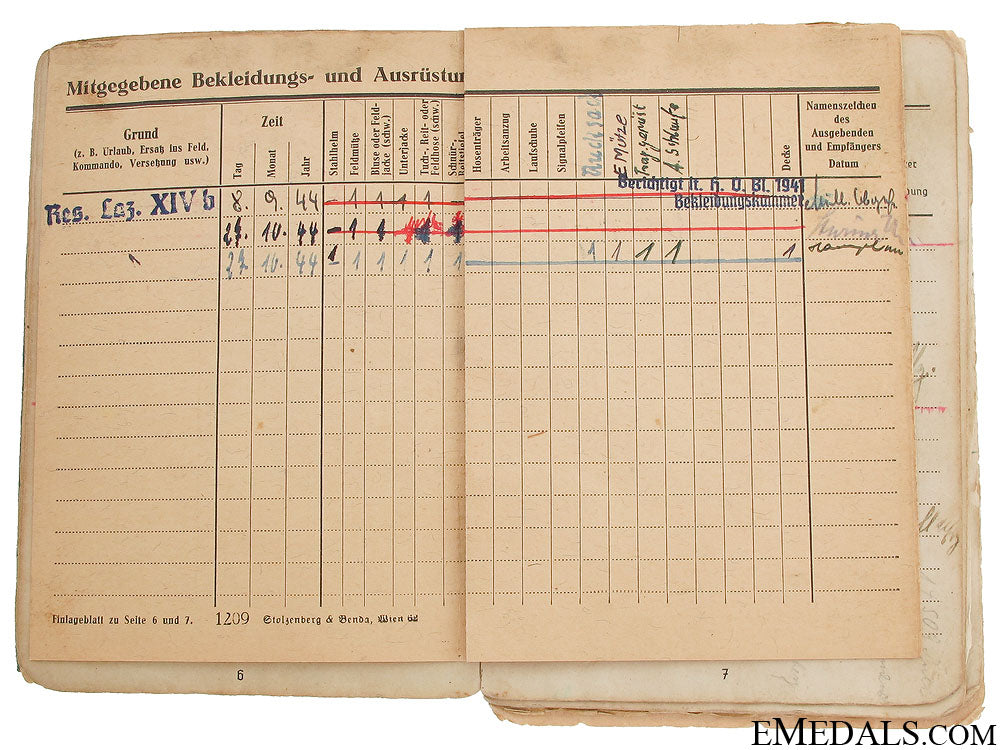 Mitgegebene Bekleidungs- und Ausrüstun
Grund
(z. B. Urlaub, Ersatz ins Feld,
Kommando, Versetzung usw.)
Zeit
Tag
Monat
Jahr
Stahlhelm
Feldmütze
Bluse oder Feld-
jacke (schw.)
Unterjacke
Tuch-, Reit- oder
Feldhose (schw.)
Schnür-,
Hosenträger
Arbeitsanzug
Laufschuhe
Signalpfeifen
E Mütze
Traggerüst
A. Schlaufe
Decke
Namenszeichen
des
Ausgebenden
und Empfängers
Datum
Berichtigt lt. H. V. Bl. 1941
Bekleidungskammer
Res. Laz. XIV b 8. 9. 44 – 1 1 1 1 –
27. 10. 44 – 1 1 1 1
" 27. 10. 44 1 1 1 1 1 1 1 1 1 1 1
Einlageblatt zu Seite 6 und 7. 1209 Stolzenberg & Benda, Wien 62
6
7
EMEDALS.COM